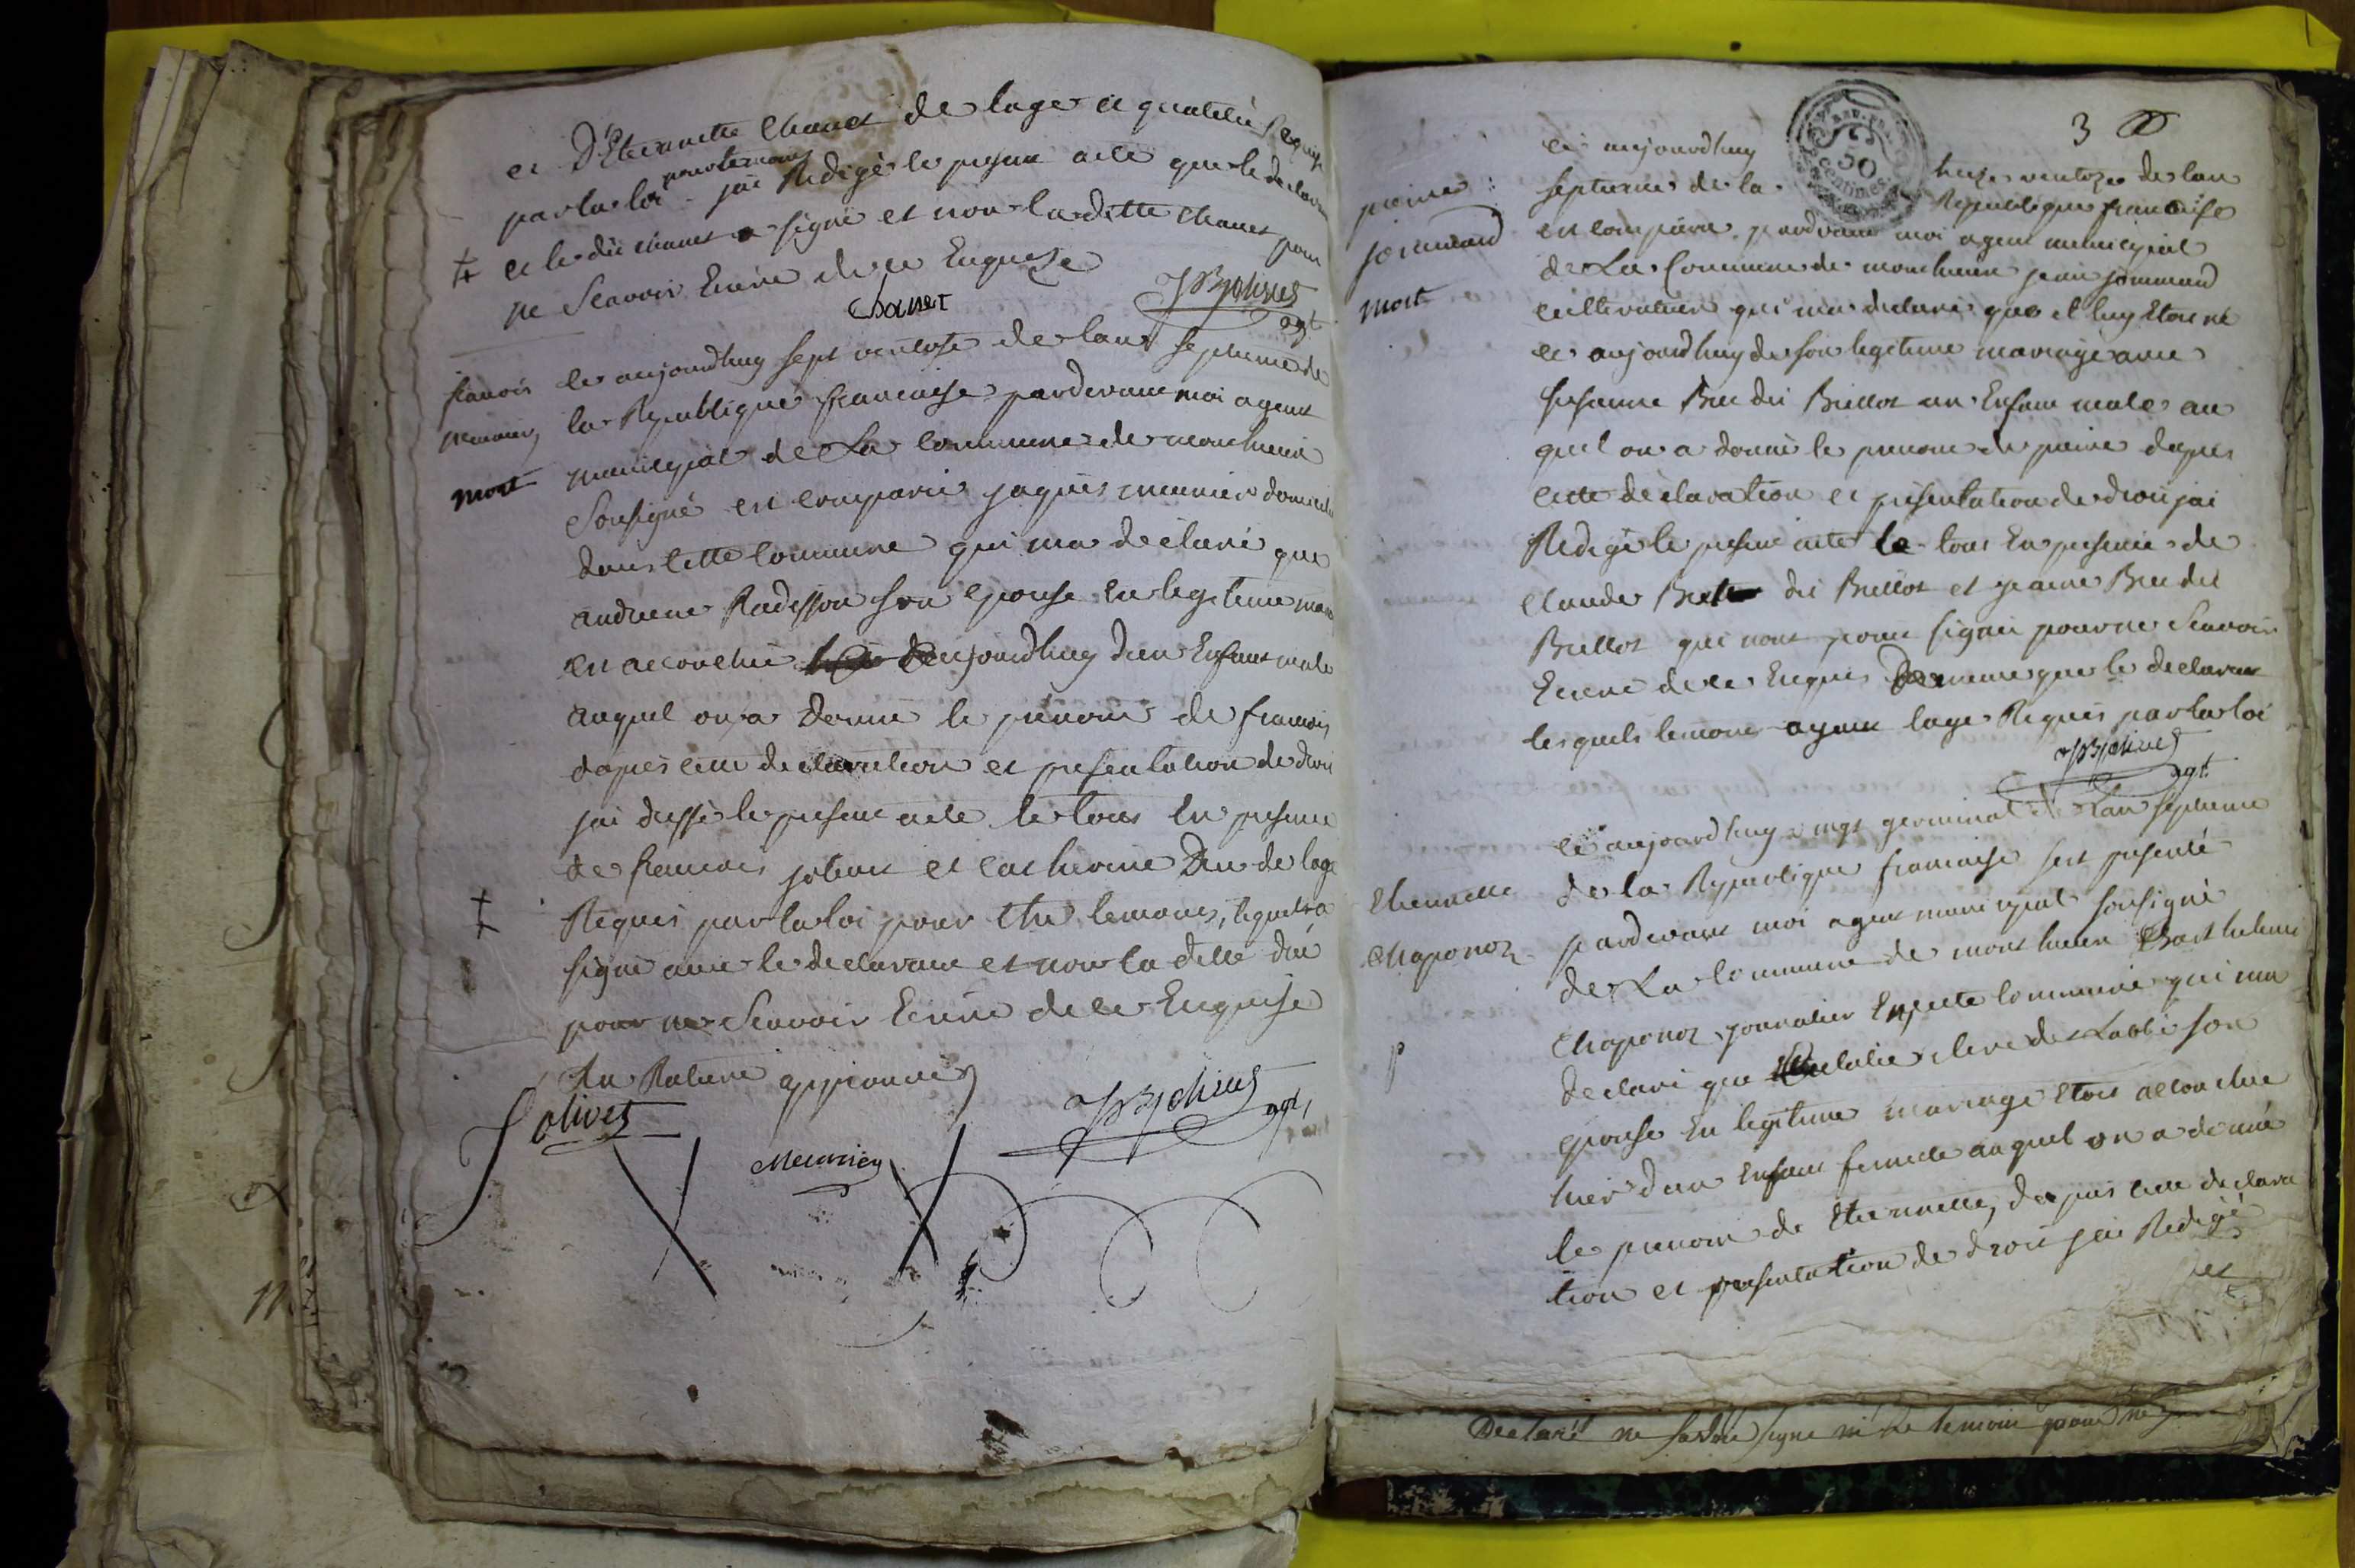 et d'Etiennette chanet de lage et qualité Requise
par la loi pour temoins jai Redigé le present acte que le declarant
et le dit chanet a signé et non la ditte chanet pour
ne Scavoir Ecrire de ce Enquise
Chanet
agt
francois
meunier
mort
ce aujourdhuy sept ventose de lan septieme de
la Republique francaise pardevant moi agent
municipal de La commune de montluein
Sousigné est comparu jaques meunier domicilié
dans cette commune qui ma declaré que
andrienne Radisson son epouse en legitime
est accouchée aujourdhuy dun Enfant male
auquel on a donné le prenom de francois
dapres cette declaration et presentation de droit
jai dressé le present acte le tous en presence
de francois jolivet et catherine Duc de lage
Requis par la loi pour etre temoins, lequel a
signé avec le declarant et non la ditte duc
pour ne Scavoir Ecrire de ce Enquise
La Rature approuvée
Jolivet
Meunier
agt
3
50
centimes
pierre
jommard
mort
ce aujourdhuy treize ventoze de lan
septieme de la Republique francaise
est comparu pardevant moi agent municipal
de La Commune de montluein jean jommard
cultivateur qui ma declaré que il luy Etoit né
ce aujourdhuy de son legitime mariage avec
susanne Bre dit Brillot un Enfant male au
quel on a donné le prenom de pierre dapres
cette declaration et presentation de droit jai
Redigé le present acte le tous En presence de
claude dit Brillot et jeanne Bre dit
Brillot qui nont pour signé pour ne Scavoir
Ecrire de ce Enquis De meme que le declarant
lesquels temoins ayant lage Requis par la loi
agt
Etiennette
Chaponot
p
ce aujourdhuy vingt germinal de Lan septieme
de la Republique francaise sest presenté
pardevant moi agent municipal sousigné
de La commune de montluein Barthelemi
Chaponot journalier En cette commune qui ma
declaré que clere de Labbe son
epouse En legitime mariage Etoit accouchée
hier dun Enfant femelle auquel on a donné
le prenom de Etiennette, dapres cette declara
tion et presentation de droit jai Redigé
Declaré ne signé ni Le temoin pour ne